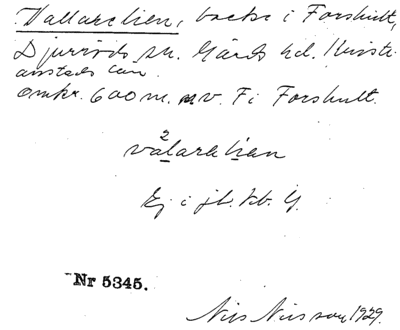 Vallareken, backe i Forshult,
Djurröds sn. Gärds hd. Kristi-
anstads län.
Omkr. 600 m. nv. F i Forshult.
Ej i jb.
Nr 5345.
Nils Nilsson 1929.